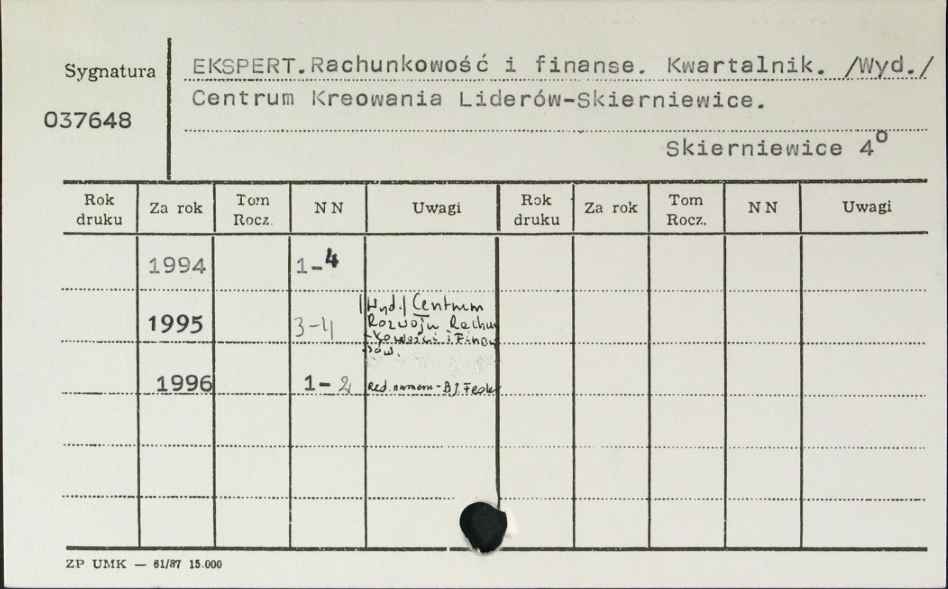 Sygnatura
037648
EKSPERT.Rachunkowość i finanse. Kwartalnik. /Wyd./
Centrum Kreowania Liderów-Skierniewice.
Skierniewice 4°
Rok druku Za rok Tom Rocz. NN Uwagi Rok druku Za rok Tom Rocz. NN Uwagi
1994 1-4
1995 3-4 /Wyd./ Centrum
Rozwoju Rachun
-kowości i Finan
sów.
1996 1-2 Red.
ZP UMK — 61/87 15.000